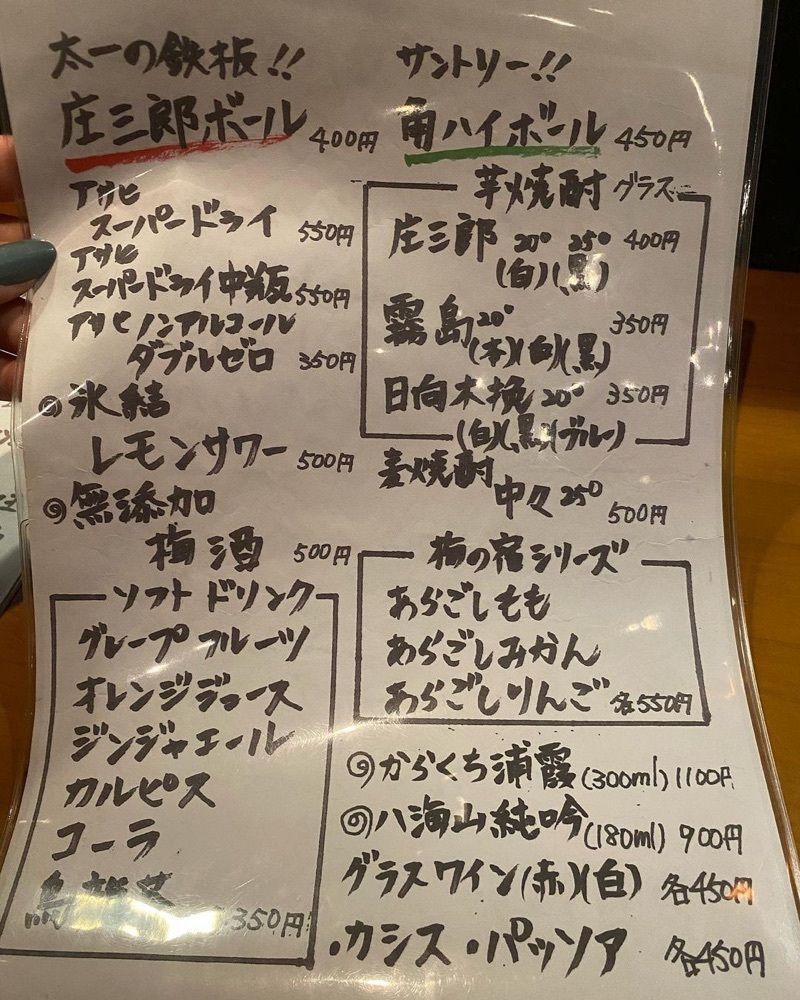 太一の鉄板!!
庄三郎ボール 400円
アサヒ
スーパードライ 550円
アサヒ
スーパードライ中瓶 550円
アサヒノンアルコール
ダブルゼロ 350円
氷結
レモンサワー 500円
無添加
梅酒 500円
ソフトドリンク
グレープフルーツ
オレンジジュース
ジンジャエール
カルピス
コーラ
烏龍茶
350円
サントリー!!
角ハイボール 450円
芋焼酎 グラス
庄三郎 20° 25° 400円
(白)(黒)
霧島 20° 350円
(本)(白)(黒)
日向木挽 20° 350円
(白)(黒)(ブルー)
麦焼酎
中々 25° 500円
梅の宿シリーズ
あらごしもも
あらごしみかん
あらごしりんご 各550円
からくち浦霞 (300ml) 1100円
八海山純吟 (180ml) 900円
グラスワイン(赤)(白) 各450円
・カシス・パッソア 各450円